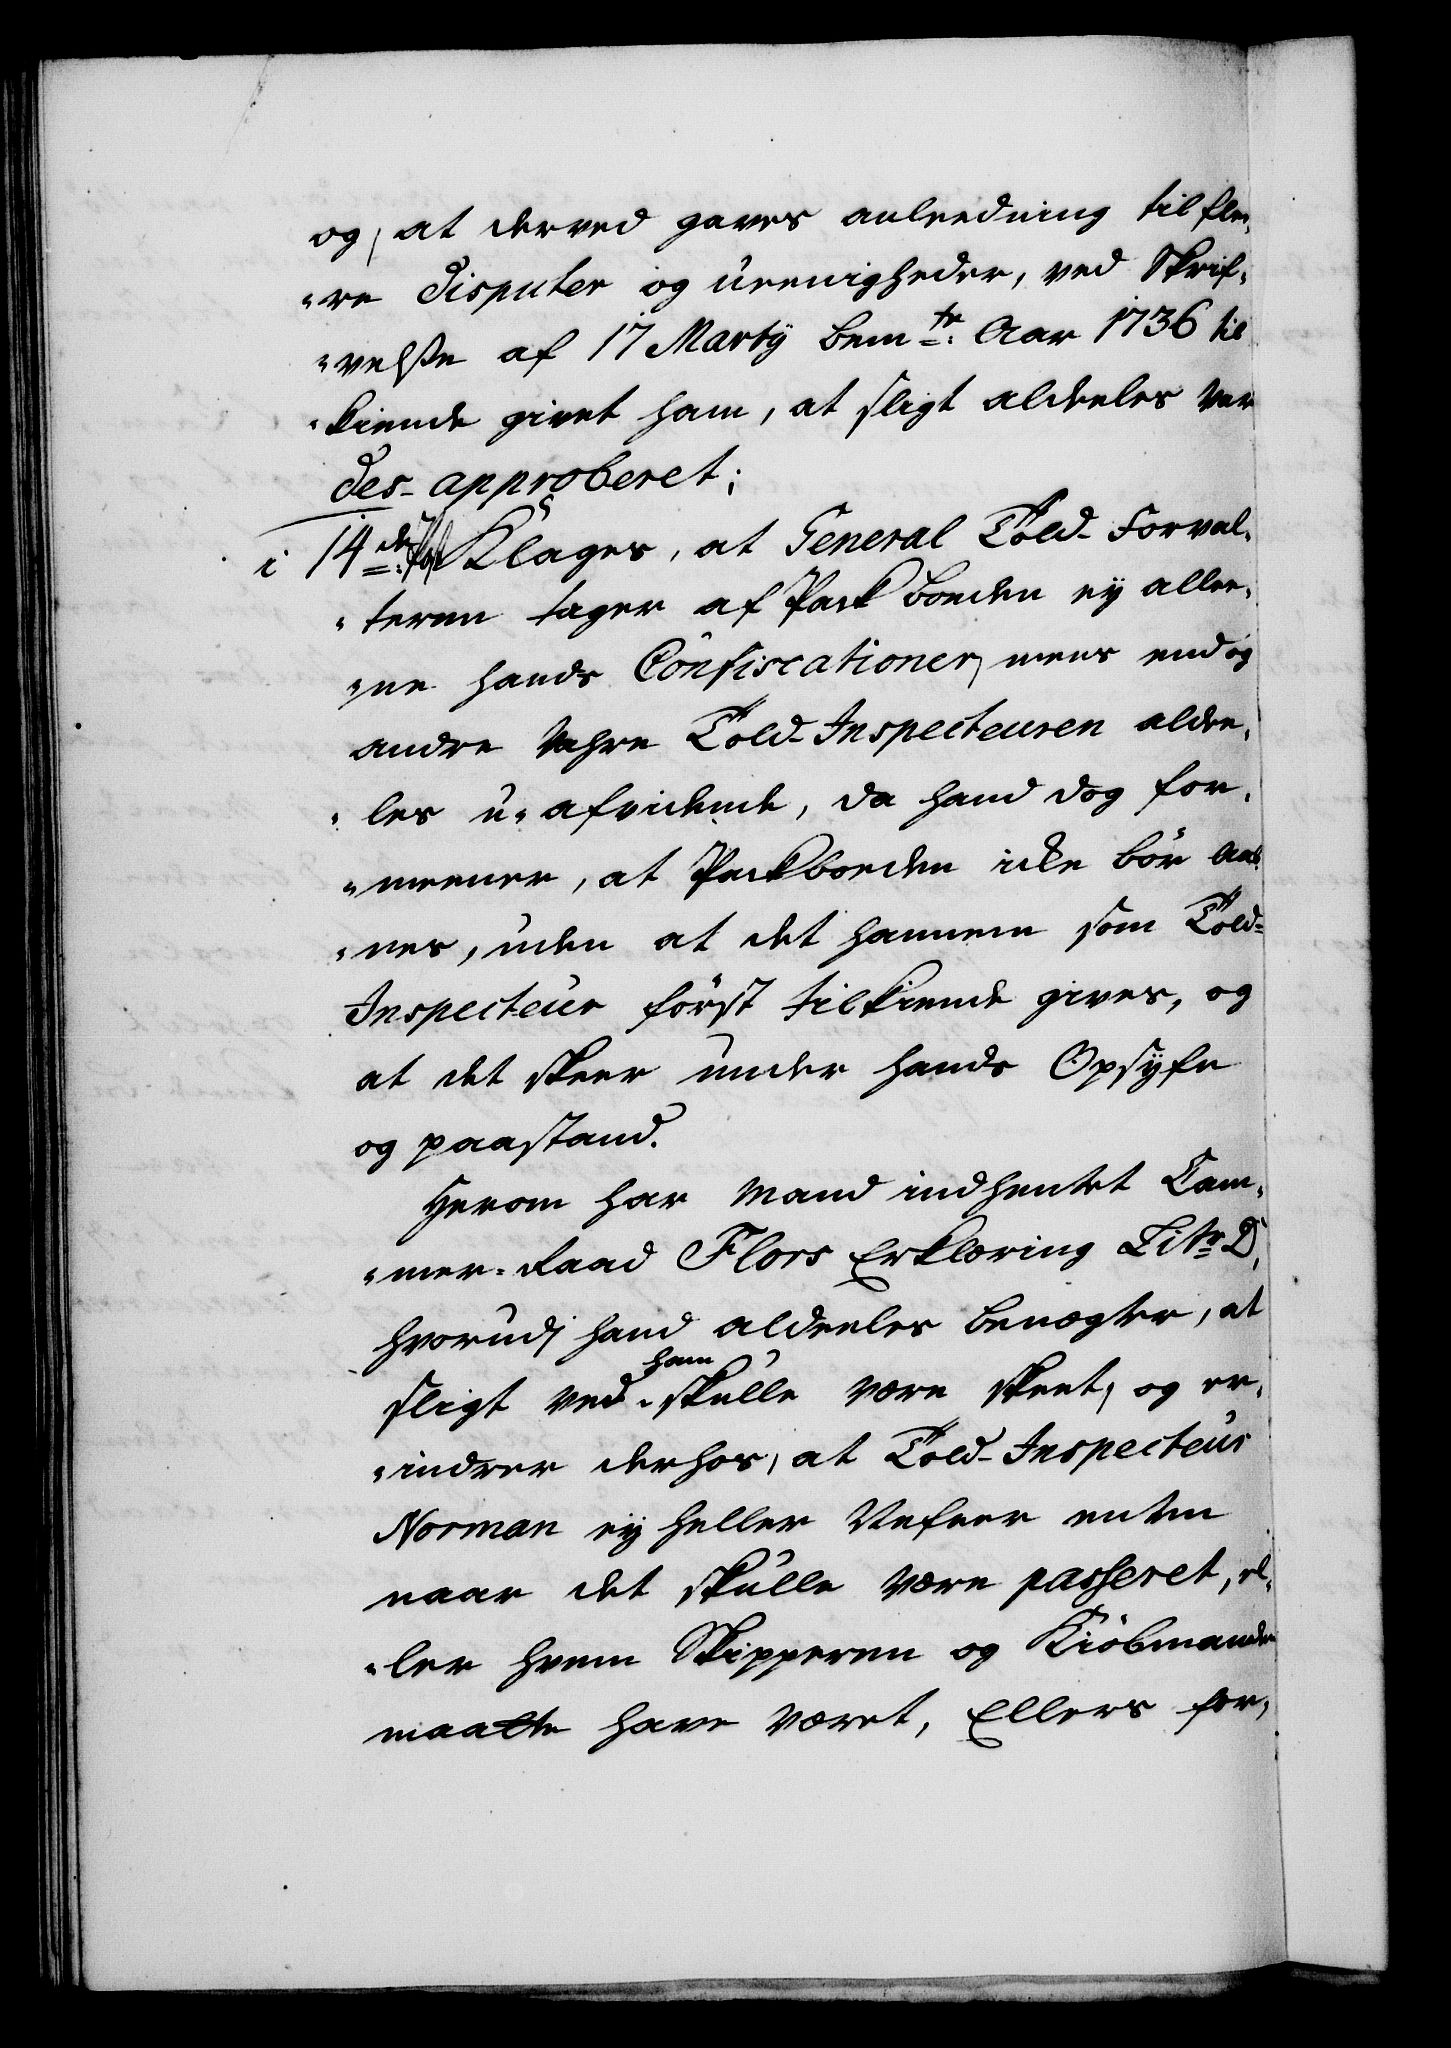 og, at derved gaves anleedning til flee,
"re disputer og ueenigheder, ved Skrif,
"velse af 17 Marty bem.te Aar 1736 til
"kiende givet ham, at sligt aldeeles var
des-approberet;
i 14.de Post Klages, at General Told-Forval,
"teren tager af Pack boeden ey allee,
"ne hands Confiscationer, mens endog
andre Vahre Told-Inspecteuren aldee,
"les u-afvidende, da hand dog for,
"meener, at Packboeden icke bör aab
"nes, uden at det hannem som Told-
Inspecteur först tilkiende gives, og
at det skeer under hands Opsyfn
og paastand.
Herom har mand indhentet Cam,
"mer-Raad Flors Erklæring Litr. D,
hvorudj hand aldeeles benægter, at
sligt ved ham skulle være skeet, og er,
"indrer derhos, at Told-Inspecteur
Norman ey heller Nefner enten
naar det skulle være passeret, el,
"ler hvem Skipperen og Kiöbmanden
maatte have været, Ellers for,